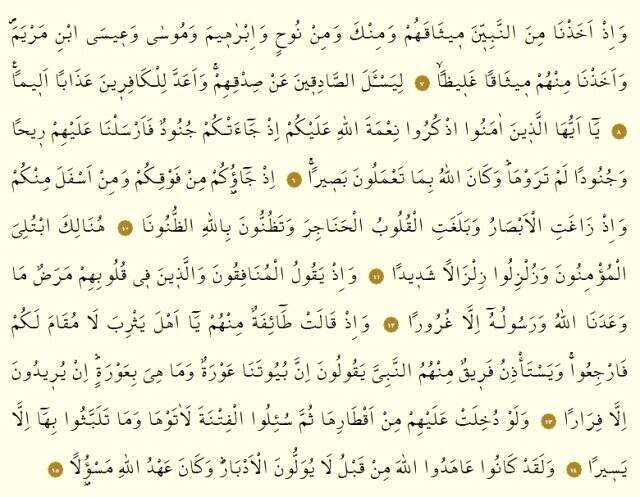 وَاِذْ اَخَذْنَا مِنَ النَّبِيّٖنَ مٖيثَاقَهُمْ وَمِنْكَ وَمِنْ نُوحٍ وَاِبْرٰهٖيمَ وَمُوسٰى وَعٖيسَى ابْنِ مَرْيَمَۖ
وَاَخَذْنَا مِنْهُمْ مٖيثَاقًا غَلٖيظًاۙ ٧ لِيَسْـَٔلَ الصَّادِقٖينَ عَنْ صِدْقِهِمْۚ وَاَعَدَّ لِلْكَافِرٖينَ عَذَابًا اَلٖيمًاۚ
٨ يَٓا اَيُّهَا الَّذٖينَ اٰمَنُوا اذْكُرُوا نِعْمَةَ اللّٰهِ عَلَيْكُمْ اِذْ جَٓاءَتْكُمْ جُنُودٌ فَاَرْسَلْنَا عَلَيْهِمْ رٖيحًا
وَجُنُودًا لَمْ تَرَوْهَاؕ وَكَانَ اللّٰهُ بِمَا تَعْمَلُونَ بَصٖيرًاۚ ٩ اِذْ جَٓاؤُ۫كُمْ مِنْ فَوْقِكُمْ وَمِنْ اَسْفَلَ مِنْكُمْ
وَاِذْ زَاغَتِ الْاَبْصَارُ وَبَلَغَتِ الْقُلُوبُ الْحَنَاجِرَ وَتَظُنُّونَ بِاللّٰهِ الظُّنُونَا ١٠ هُنَالِكَ ابْتُلِىَ
الْمُؤْمِنُونَ وَزُلْزِلُوا زِلْزَالًا شَدٖيدًا ١١ وَاِذْ يَقُولُ الْمُنَافِقُونَ وَالَّذٖينَ فٖى قُلُوبِهِمْ مَرَضٌ مَا
وَعَدَنَا اللّٰهُ وَرَسُولُهُٓ اِلَّا غُرُورًا ١٢ وَاِذْ قَالَتْ طَٓائِفَةٌ مِنْهُمْ يَٓا اَهْلَ يَثْرِبَ لَا مُقَامَ لَكُمْ
فَارْجِعُواۚ وَيَسْتَأْذِنُ فَرٖيقٌ مِنْهُمُ النَّبِىَّ يَقُولُونَ اِنَّ بُيُوتَنَا عَوْرَةٌ وَمَا هِىَ بِعَوْرَةٍۚ اِنْ يُرٖيدُونَ
اِلَّا فِرَارًا ١٣ وَلَوْ دُخِلَتْ عَلَيْهِمْ مِنْ اَقْطَارِهَا ثُمَّ سُئِلُوا الْفِتْنَةَ لَاٰتَوْهَا وَمَا تَلَبَّثُوا بِهَٓا اِلَّا
يَسٖيرًا ١٤ وَلَقَدْ كَانُوا عَاهَدُوا اللّٰهَ مِنْ قَبْلُ لَا يُوَلُّونَ الْاَدْبَارَؕ وَكَانَ عَهْدُ اللّٰهِ مَسْؤُ۫لًا ١٥